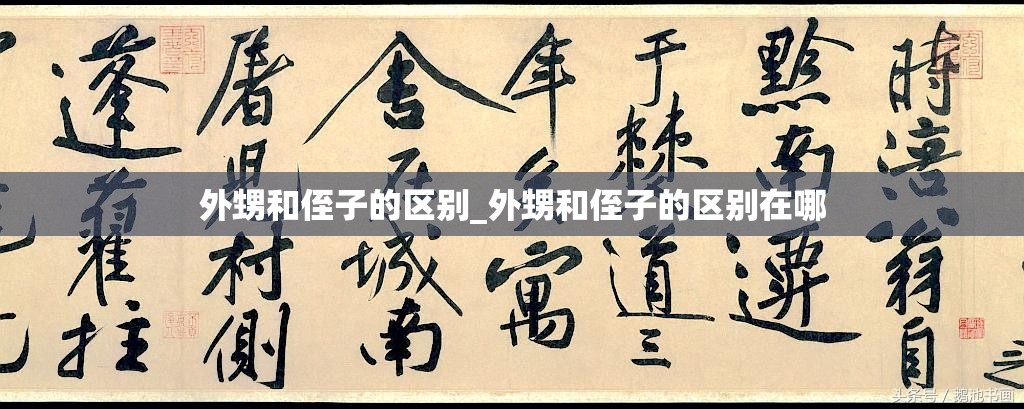 時涪翁自
黔南遷
于棘道三
年寓
舍在城南
屠児村側
蓬藋拄
外甥和侄子的区别_外甥和侄子的区别在哪
头条号 / 鹅池书画